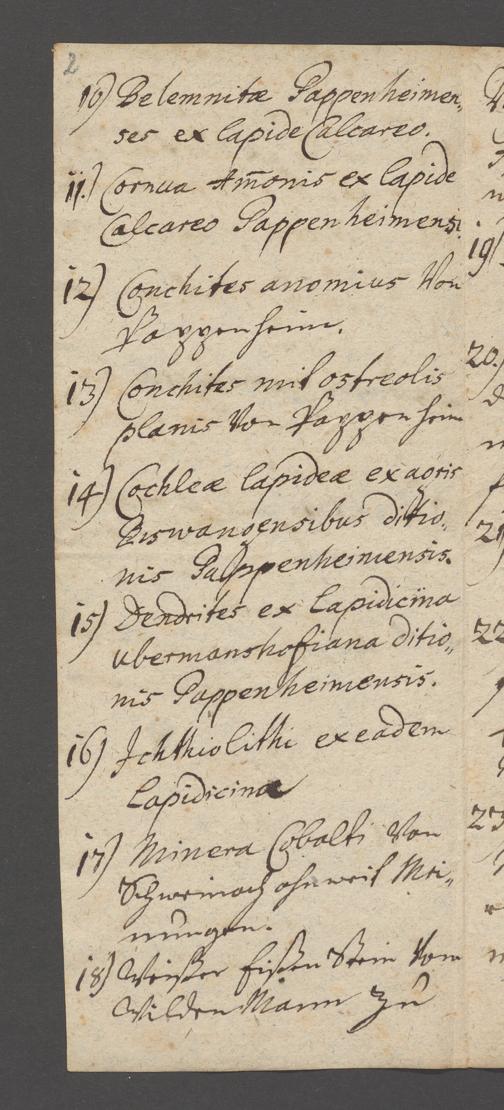 2
10) Belemnitæ Pappenheimen„
ses ex lapide Calcareo.
11.) Cornua Am̄onis ex lapide
Calcareo Pappenheimensi
12) Conchites anomius Von
Pappenheim.
13) Conchites mit ostreolis
planis Von Pappenheim
14) Cochleæ lapideæ ex agris
Biswangensibus ditio„
nis Palppenheimensis.
15) Dendrites ex Lapidicina
Ubermanshofiana ditio„
nis Pappenheimensis.
16) Ichthiolithi ex eadem
Lapidicina
17) Minera Cobalti Von
ohnweit Mei„
nungen.
18) Weißer Eißen Stein Vom
Wilden Mann zu
19)
20.
21
22
23